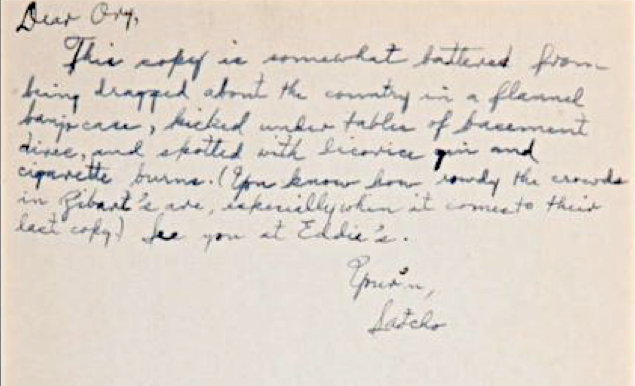 Dear Ory,
This copy is somewhat battered from
being dragged about the country in a flannel
banjo case, kicked under tables of basement
dives, and spotted with licorice gin and
cigarette burns. (You know how rowdy the crowds
in Zibart's are, especially when it comes to their
last copy) See you at Eddie's.
Your'n,
Satcho